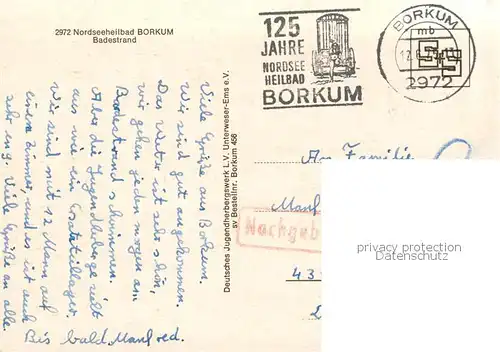 2972 Nordseeheilbad BORKUM
Badestrand
125
JAHRE
NORDSEE
HEILBAD
BORKUM
BORKUM
mb
2972
Viele Grüße aus Borkum.
Wir sind gut angekommen.
Das Wetter ist sehr schön,
wir gehen jeden morgen am
Badestrand schwimmen.
Aber die Jugendherberge sieht
aus wie ein Ersatzteillager.
Wir sind mit 12 Mann auf
einem Zimmer, und es ist auch
sehr eng. Viele Grüße an alle.
Bis bald, Manfred.
Deutsches Jugendherbergswerk L.V. Unterweser-Ems e.V.
sv Bestellnr. Borkum 456
An Familie
Manf
Nachgeb
43
privacy protection
Datenschutz